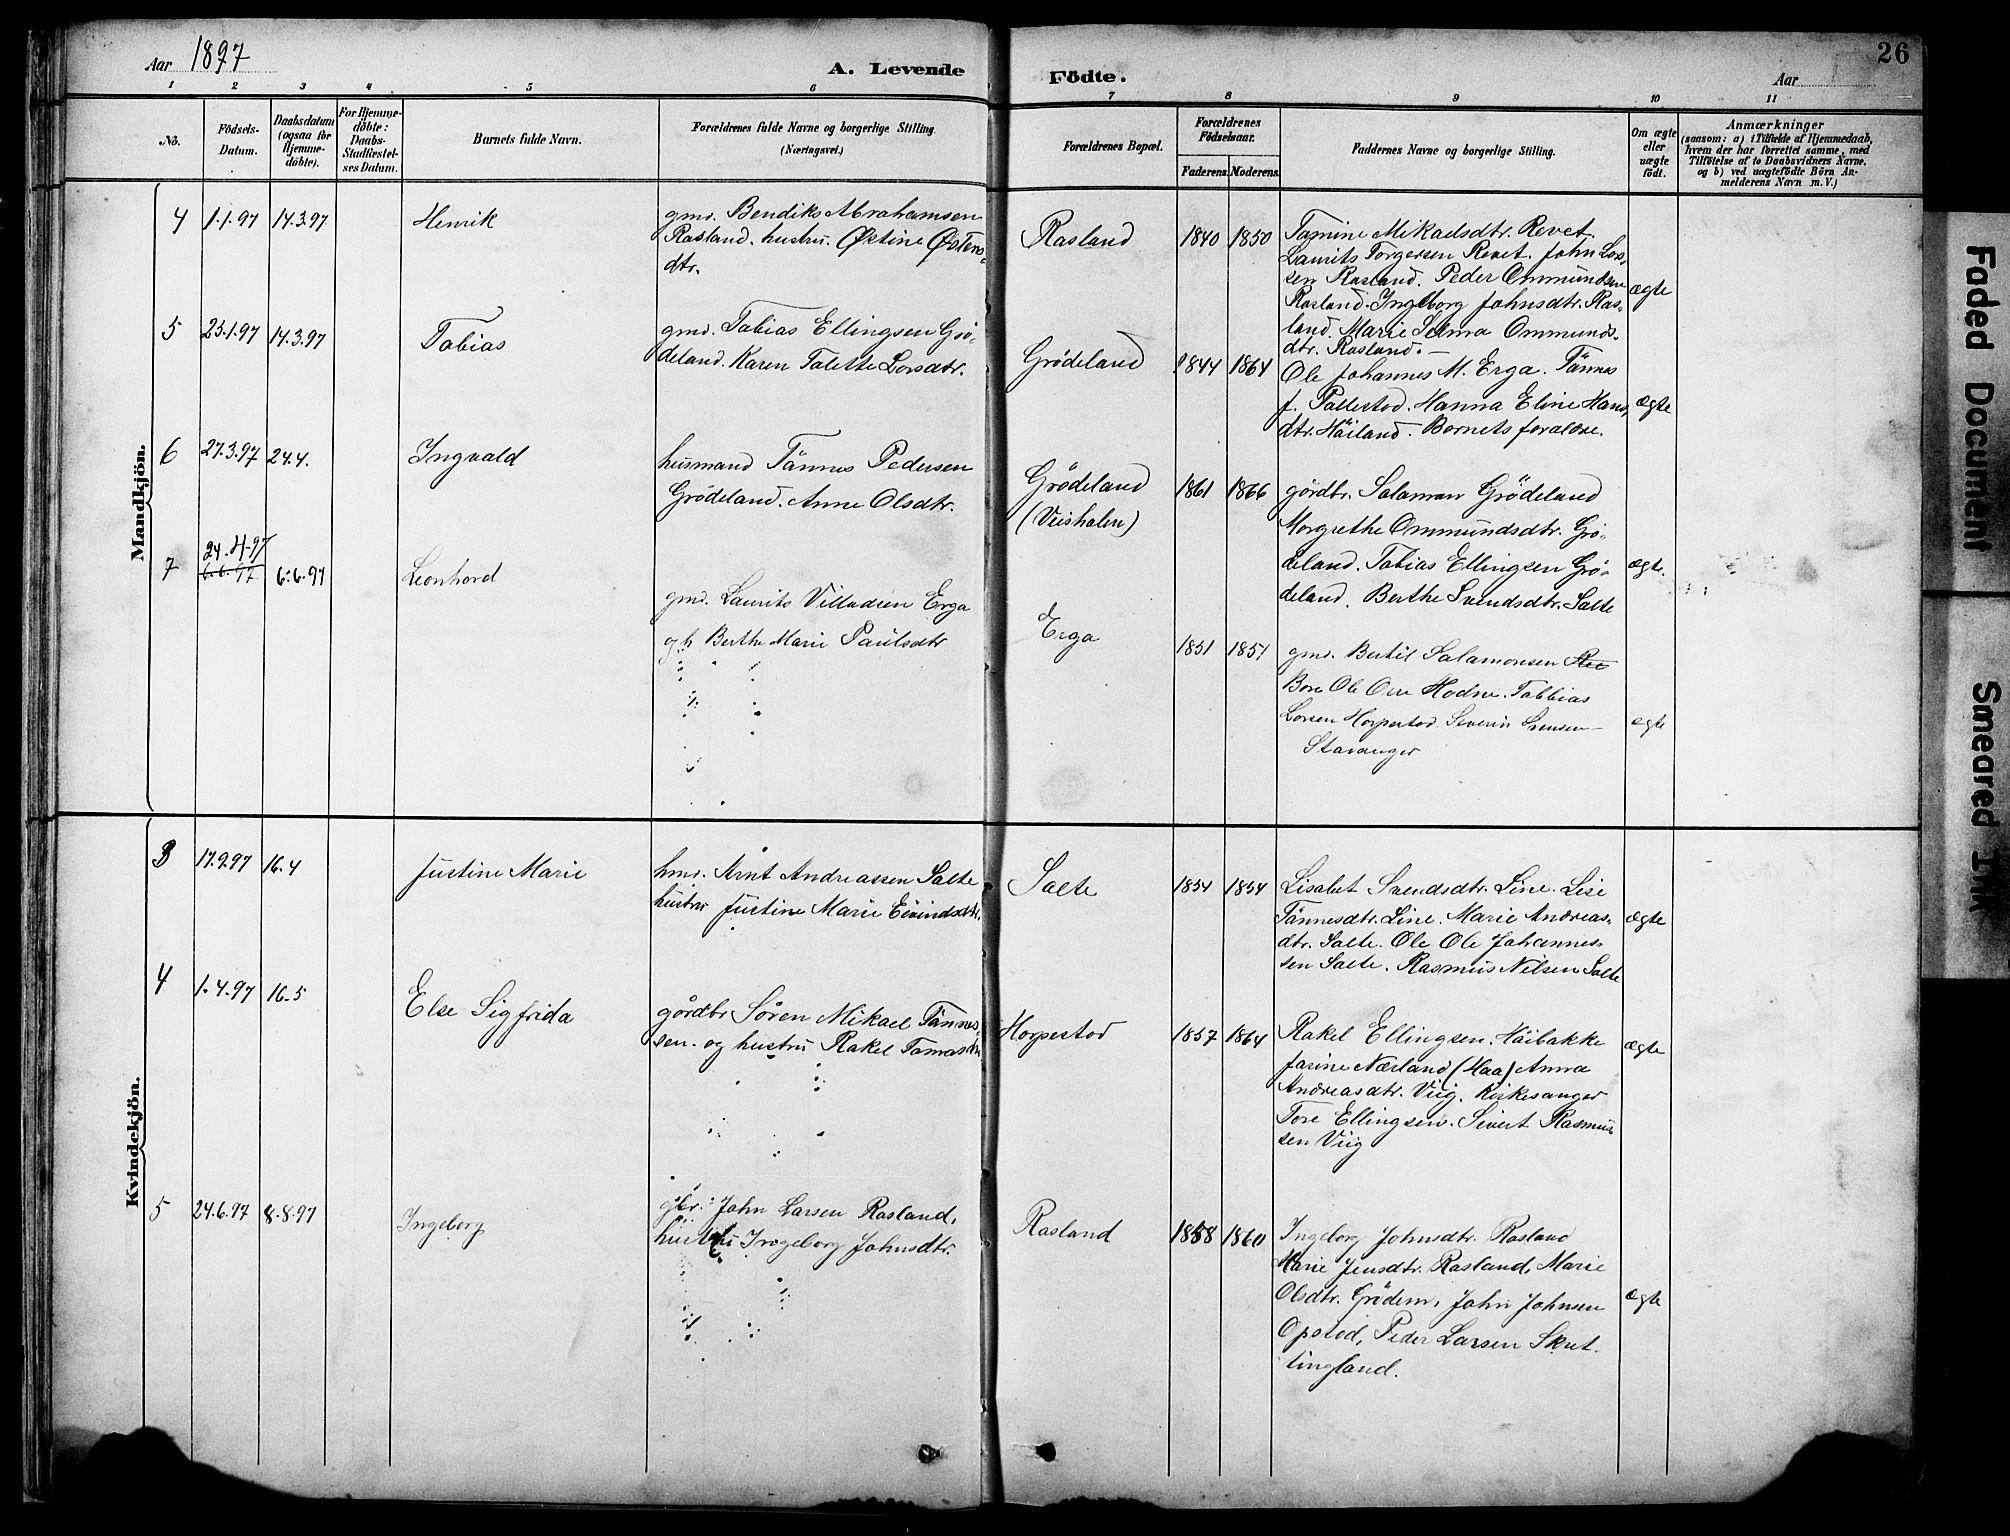 Aar 1897
A. Levende Födte.
Aar
26
1 2 3 4 5 6 7 8 9 10 11
No.
Födsels-Datum.
Daabsdatum (ogsaa for Hjemmedöbte).
For Hjemmedöbte: Daabs-Stadfæstelses Datum.
Barnets fulde Navn.
Forældrenes fulde Navne og borgerlige Stilling.
(Næringsvei.)
Forældrenes Bopæl.
Forældrenes Födselsaar.
Faderens. Moderens.
Faddernes Navne og borgerlige Stilling.
Om ægte eller uægte födt.
Anmærkninger
(saasom: a) i Tilfælde af Hjemmedaab,
hvem der har forrettet samme, med
Tilföielse af to Daabsvidners Navne,
og b) ved uægtefödte Börn An-
melderens Navn m. V.)
Mandkjön.
4 1.1.97 14.3.97 Henrik
gmd. Bendiks Abrahamsen
Rasland. hustru. Østine Østens-
dtr.
Rasland 1840 1850
Tamine Mikaelsdtr. Revet.
Laurits Torgersen Revet. John Lars-
sen Rasland. Peder Ommundsen
Rasland. Ingeborg Johnsdtr. Ras-
land. Marie Selma Ommunds-
dtr. Rasland.
ægte
5 23.1.97 14.3.97 Tobias
gmd. Tobias Ellingsen Grö-
deland. Karen Talette Larsdtr.
Grödeland 1844 1864
Ole Johannes M. Erga. Tönnes
J. Pallestad. Hanna Eline Hans-
dtr. Håiland. Barnets forældre.
ægte
6 27.3.97 24.4. Ingvald
husmand Tönnes Pedersen
Grödeland. Anne Olsdtr.
Grödeland
1861 1866
gårdbr. Salamon Grödeland
Margrethe Ommundsdtr. Grö-
deland. Tobias Ellingsen Grö-
deland. Berthe Svendsdtr. Salte
ægte.
7 24.4.97
6.6.97 6.6.97 Leonhard
gmd. Laurits Villadsen Erga
og h Berthe Marie Paulsdtr
Erga
1851 1857
gmd. Bertil Salamonsen
Bore Ole Hodne. Tobbias
Larsen Horpestad. Severin
Stavanger
ægte
Kvindekjön.
3 17.9.97 16.4 Justine Marie
hmd. Arnt Andreassen Salte
hustru Justine Marie Eivindsdtr.
Salte 1854 1854
Lisabet Svendsdtr. Line. Lise
Tönnesdtr. Line. Marie Andreas-
dtr. Salte. Ole Ole Johannes-
sen Salte. Rasmus Nilsen Salte
ægte
4 1.4.97 16.5 Else Sigfrida
gårdbr Sören Mikael Tönnes-
sen. og hustru Rakel Tomasdtr
Horpestad 1857 1864
Rakel Ellingsen. Håibakke
Jarine Nærland (Haa) Anna
Andreasdtr. Viig. Kirkesanger
Tore Ellingsen. Sivert Rasmus-
sen Viig
ægte
5 24.6.97 8.8.97 Ingeborg
gbr. John Larsen Rasland,
hustru Ingeborg Johnsdtr.
Rasland 1858 1860
Ingeborg Johnsdtr. Rasland
Marie Jensdtr. Rasland, Marie
Olsdtr. Grödem, John Johnsen
Opstad, Peder Larsen Skret-
tingland.
ægte
Faded Document
Smeared Ink